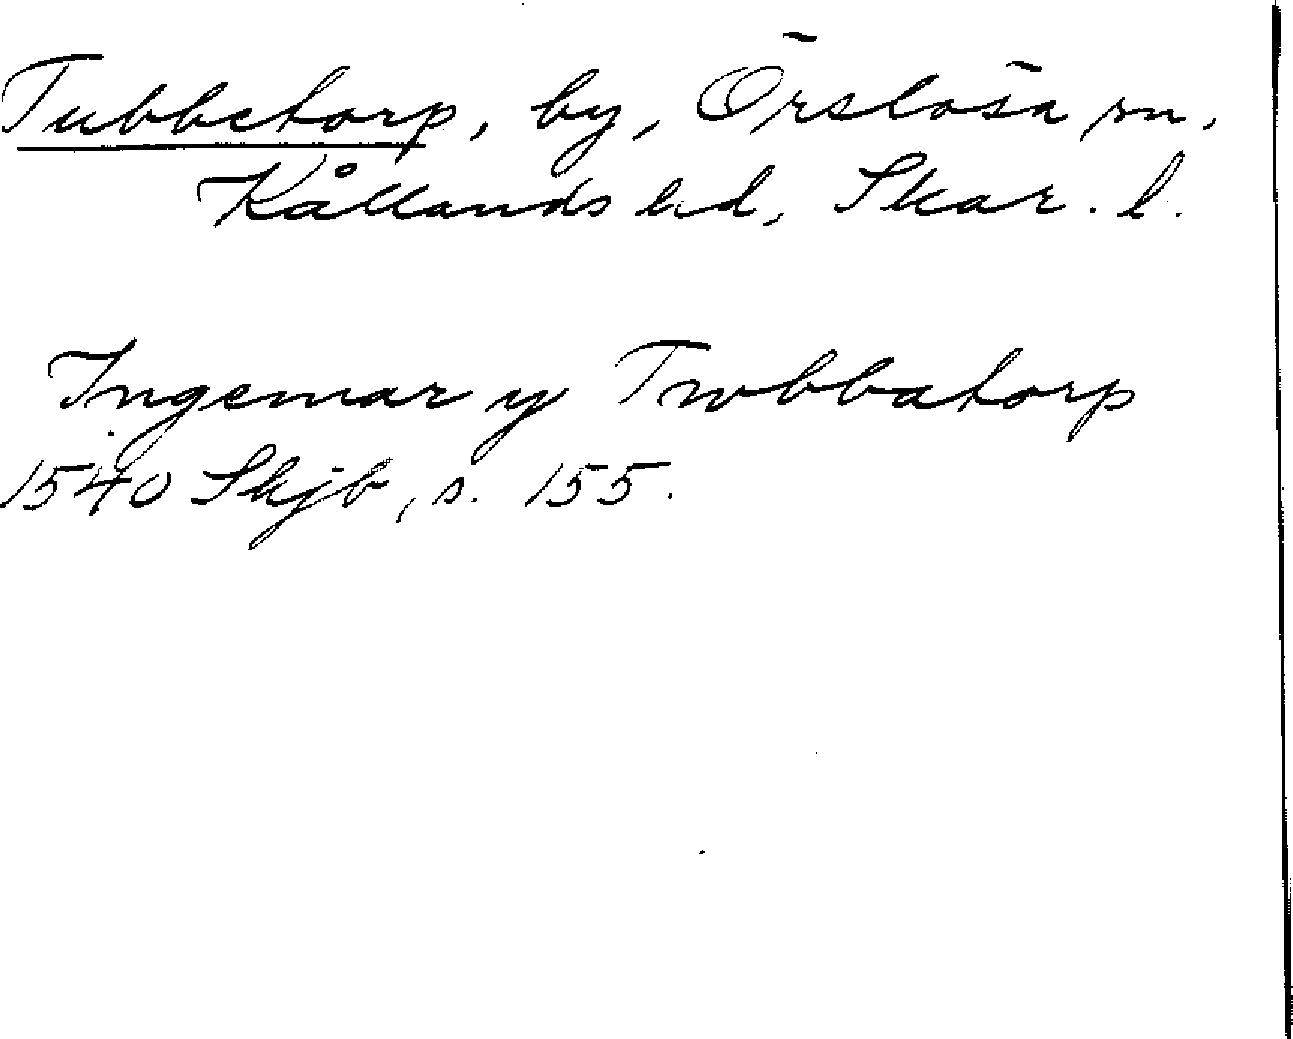 Tubbetorp, by, Örslösa sn,
Kållands hd, Skar. l.
Ingemar y Twbbatorp
1540 Skjb, s. 155.